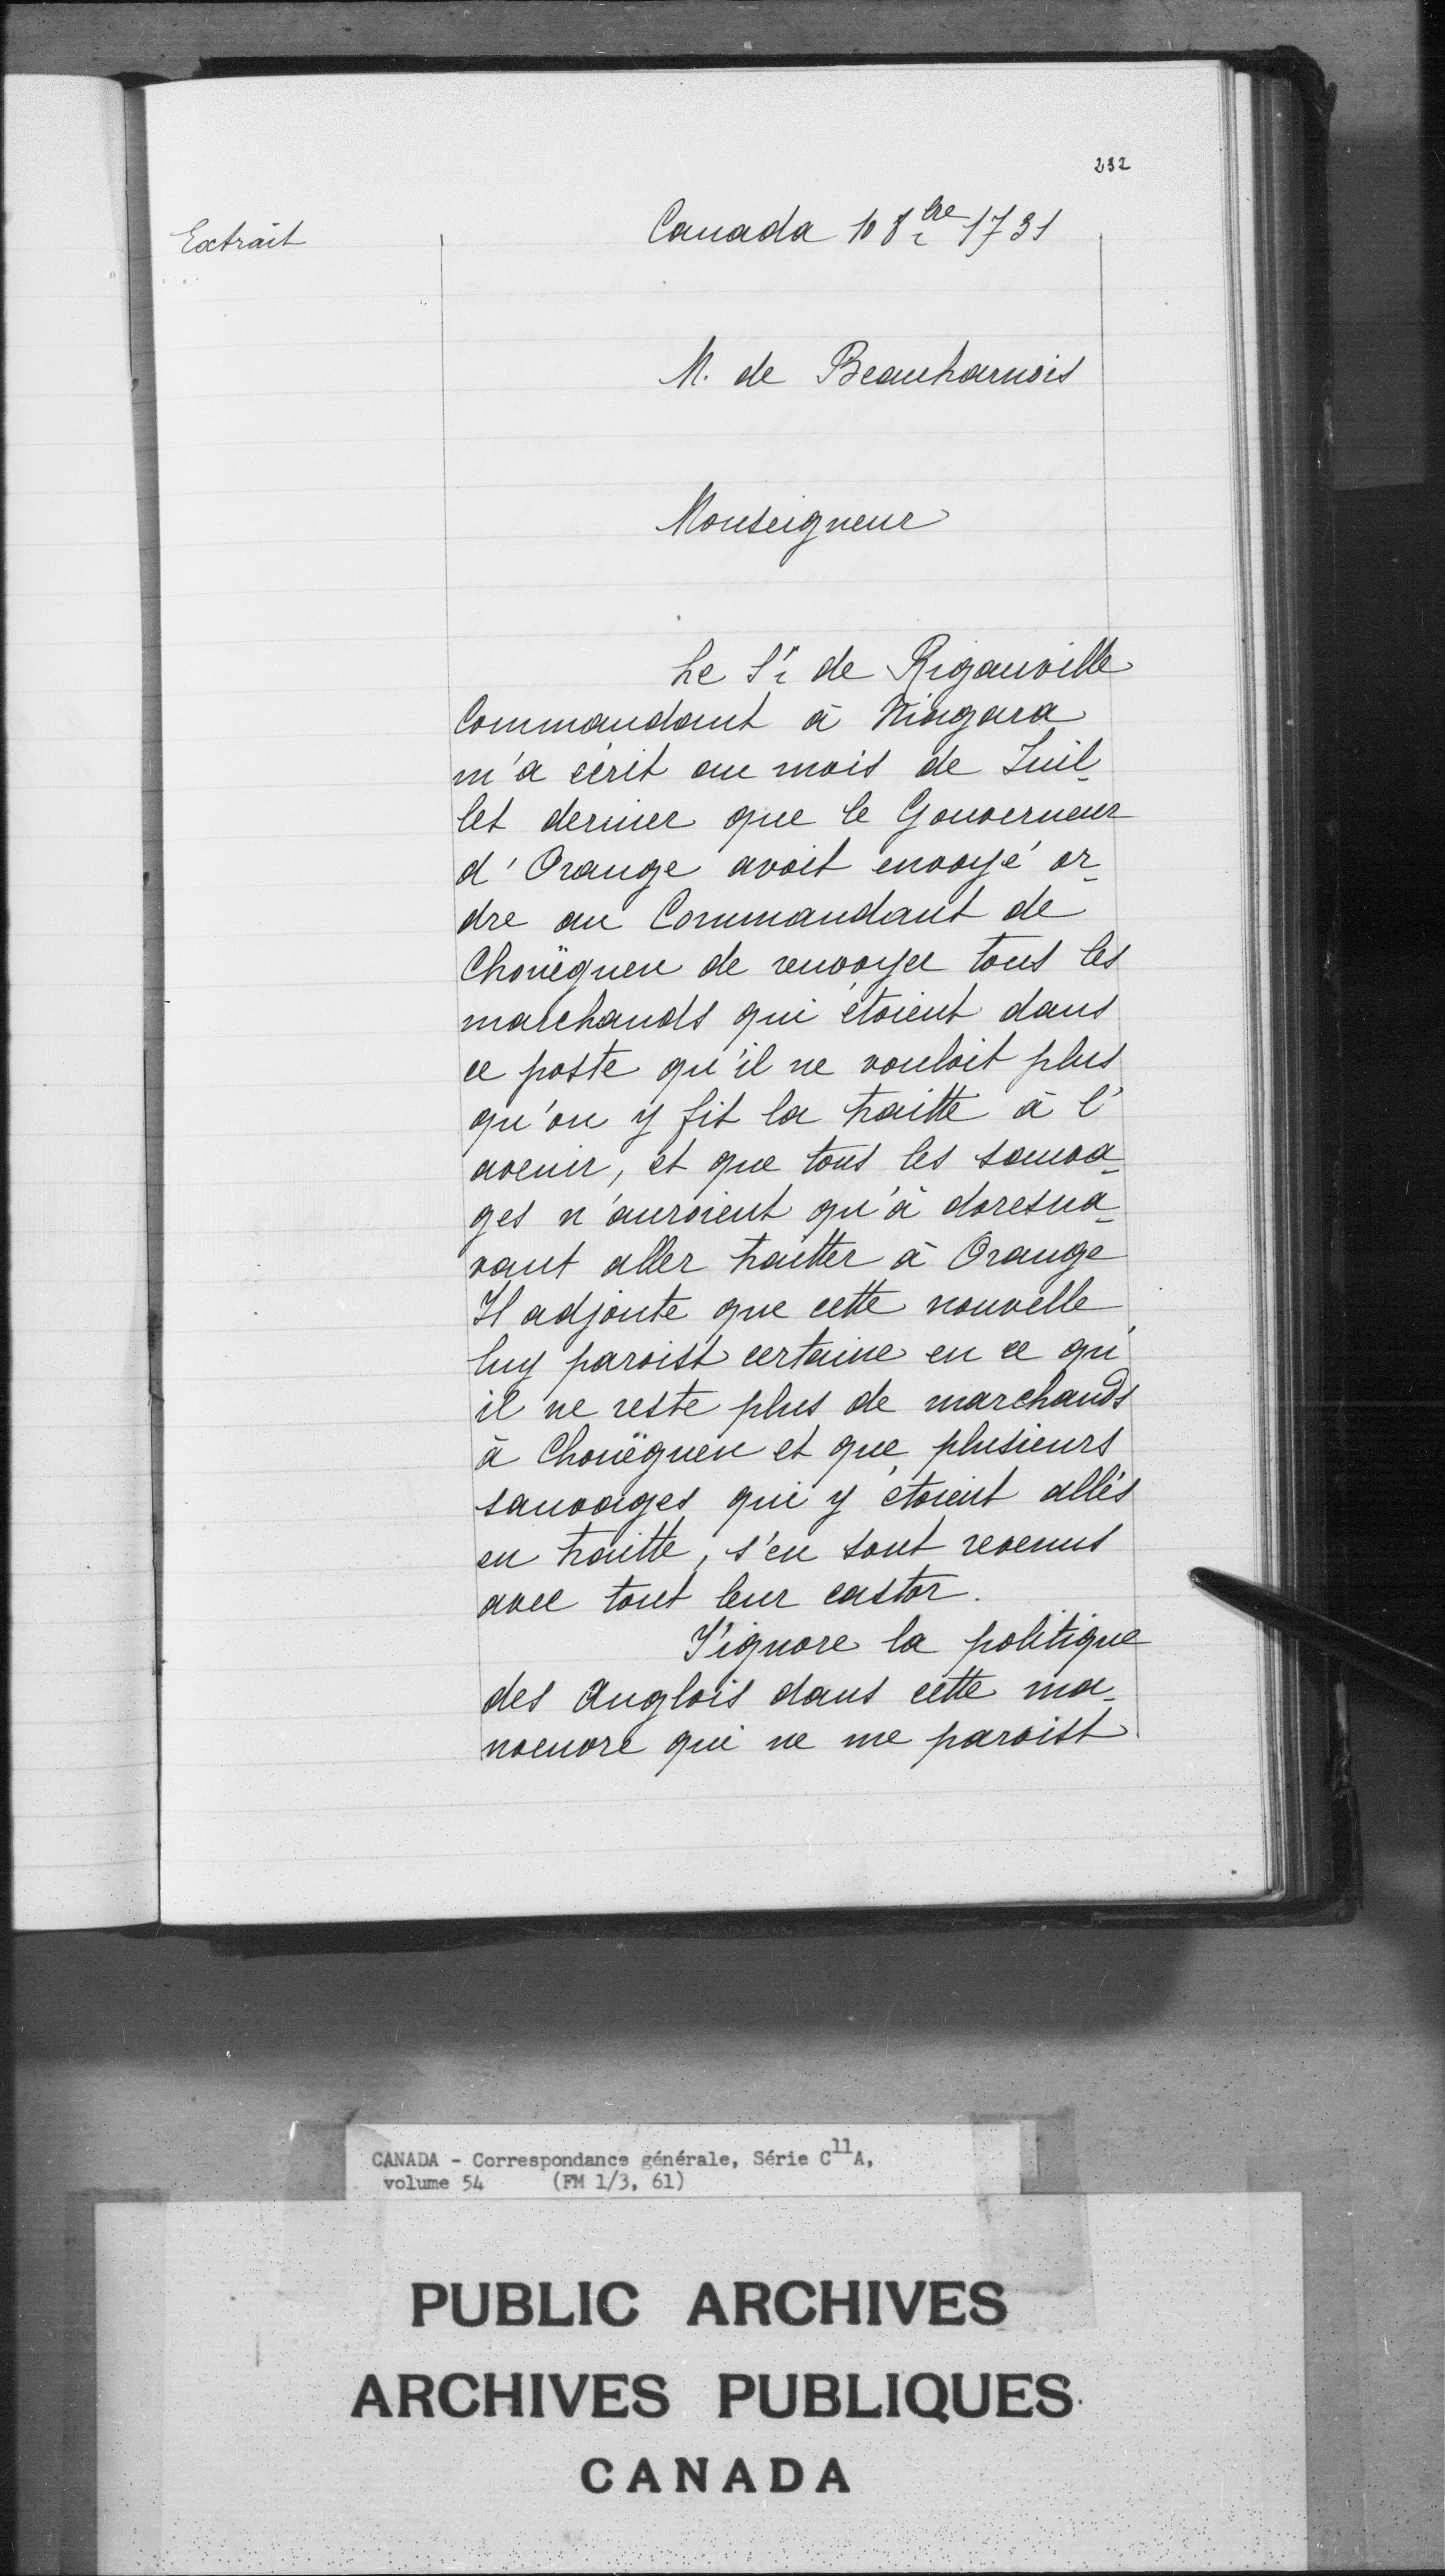 232
Extrait
Canada 10 8bre 1731
M. de Beauharnois
Monseigneur
Le Sr de Rigauville
Commandant à Niagara
m'a écrit au mois de Juil-
let dernier que le Gouverneur
d'Orange avoit envoyé or-
dre au Commandant de
Chouëguen de renvoyer tous les
marchands qui étoient dans
ce poste qu'il ne vouloit plus
qu'on y fit la traitte à l'
avenir, et que tous les sauva-
ges n'auroient qu'à doresna-
vant aller traitter à Orange
Il adjoute que cette nouvelle
luy paroist certaine en ce qu'
il ne reste plus de marchands
à Chouëguen et que plusieurs
sauvages qui y étoient allés
en traitte, s'en sont revenus
avec tout leur castor.
J'ignore la politique
des Anglois dans cette ma-
noeuvre qui ne me paroist
CANADA - Correspondance générale, Série C11A,
volume 54 (FM 1/3, 61)
PUBLIC ARCHIVES
ARCHIVES PUBLIQUES
CANADA